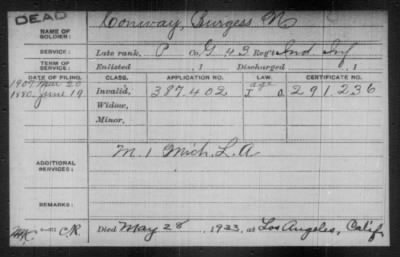 DEAD
NAME OF SOLDIER: Conway, Burgess N
SERVICE: Late rank, P Co. G 43 Reg't Ind Inf
TERM OF SERVICE: Enlisted , 1 Discharged , 1
DATE OF FILING. CLASS. APPLICATION NO. LAW. CERTIFICATE NO.
1907 Mar 20 age
1880 June 19 Invalid, 387.402 J O. 291.236
Widow,
Minor,
ADDITIONAL SERVICES: M. 1 Mich. L. A
REMARKS:
C.R. Died May 28, 1923, at Los Angeles, Calif